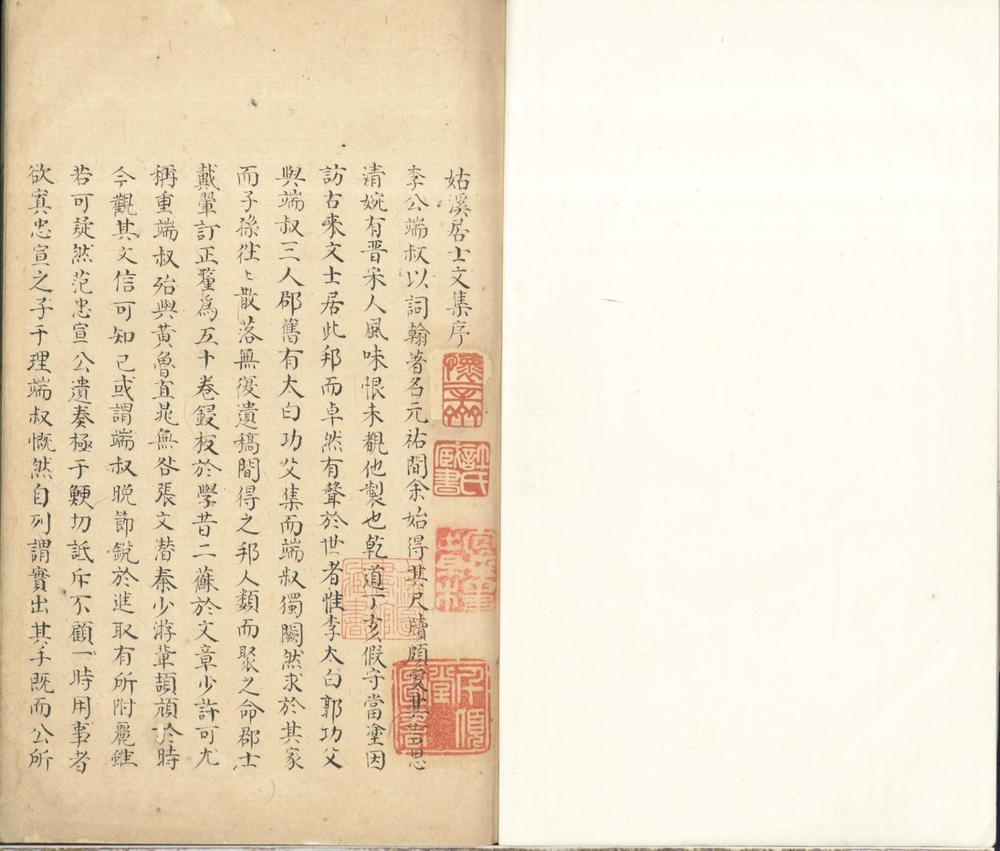 姑溪居士文集序
李公端叔以詞翰著名元祐間余始得其尺牘頗愛其言思
清婉有晋宋人風味恨未覩他製也乾道丁亥假守當塗因
訪古來文士居此邦而卓然有聲於世者惟李太白郭功父
與端叔三人郡舊有太白功父集而端叔獨闕然求於其家
而子孫往〻散落無復遺稿間得之邦人類而聚之命郡士
戴翬訂正釐爲五十卷鋟板於學昔二蘇於文章少許可尤
稱重端叔殆與黄魯直晁無咎張文潜秦少游軰頡頏於時
今觀其文信可知已或謂端叔晚節銳於進取有所附麗雖
若可疑然范忠宣公遺奏極于鯁切詆斥不顧一時用事者
欲寘忠宣之子于理端叔慨然自列謂實出其手既而公所
許氏
藏書
千頃
堂